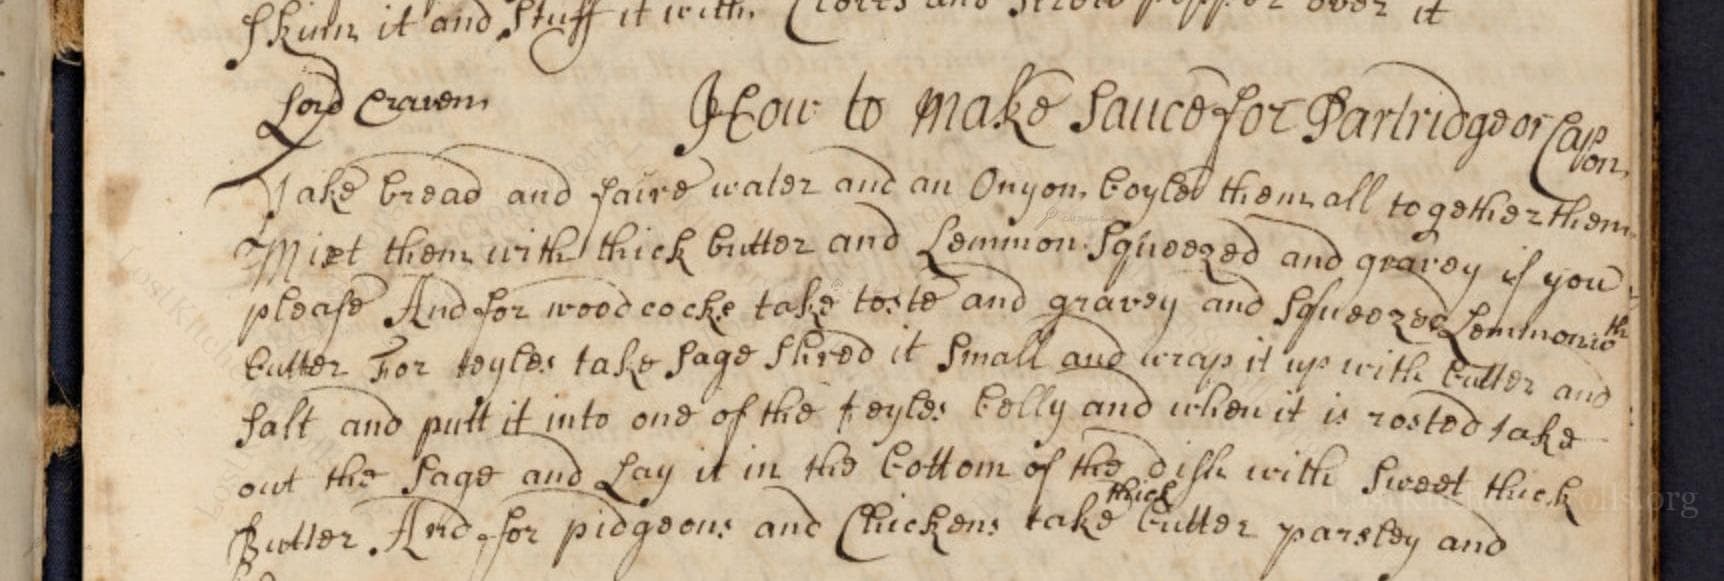 Skinn it and Stuff it with Cloves and strow pepper over it
Lord Craven How to make Sauce for Partridge or Capon
Take bread and faire water and an Onyon boyled them all together them
Mixt them with thick butter and Lemmon Squeezed and gravey if you
please And for woodcocke take toste and gravey and Squeezed Lemmon wth
butter For teyles take Sage Shred it Small and wrap it up with butter and
Salt and putt it into one of the teyles belly and when it is rosted take
out the Sage and Lay it in the bottom of the dish with Sweet thick
Butter And for pidgeons and Chickens take thick butter parsley and